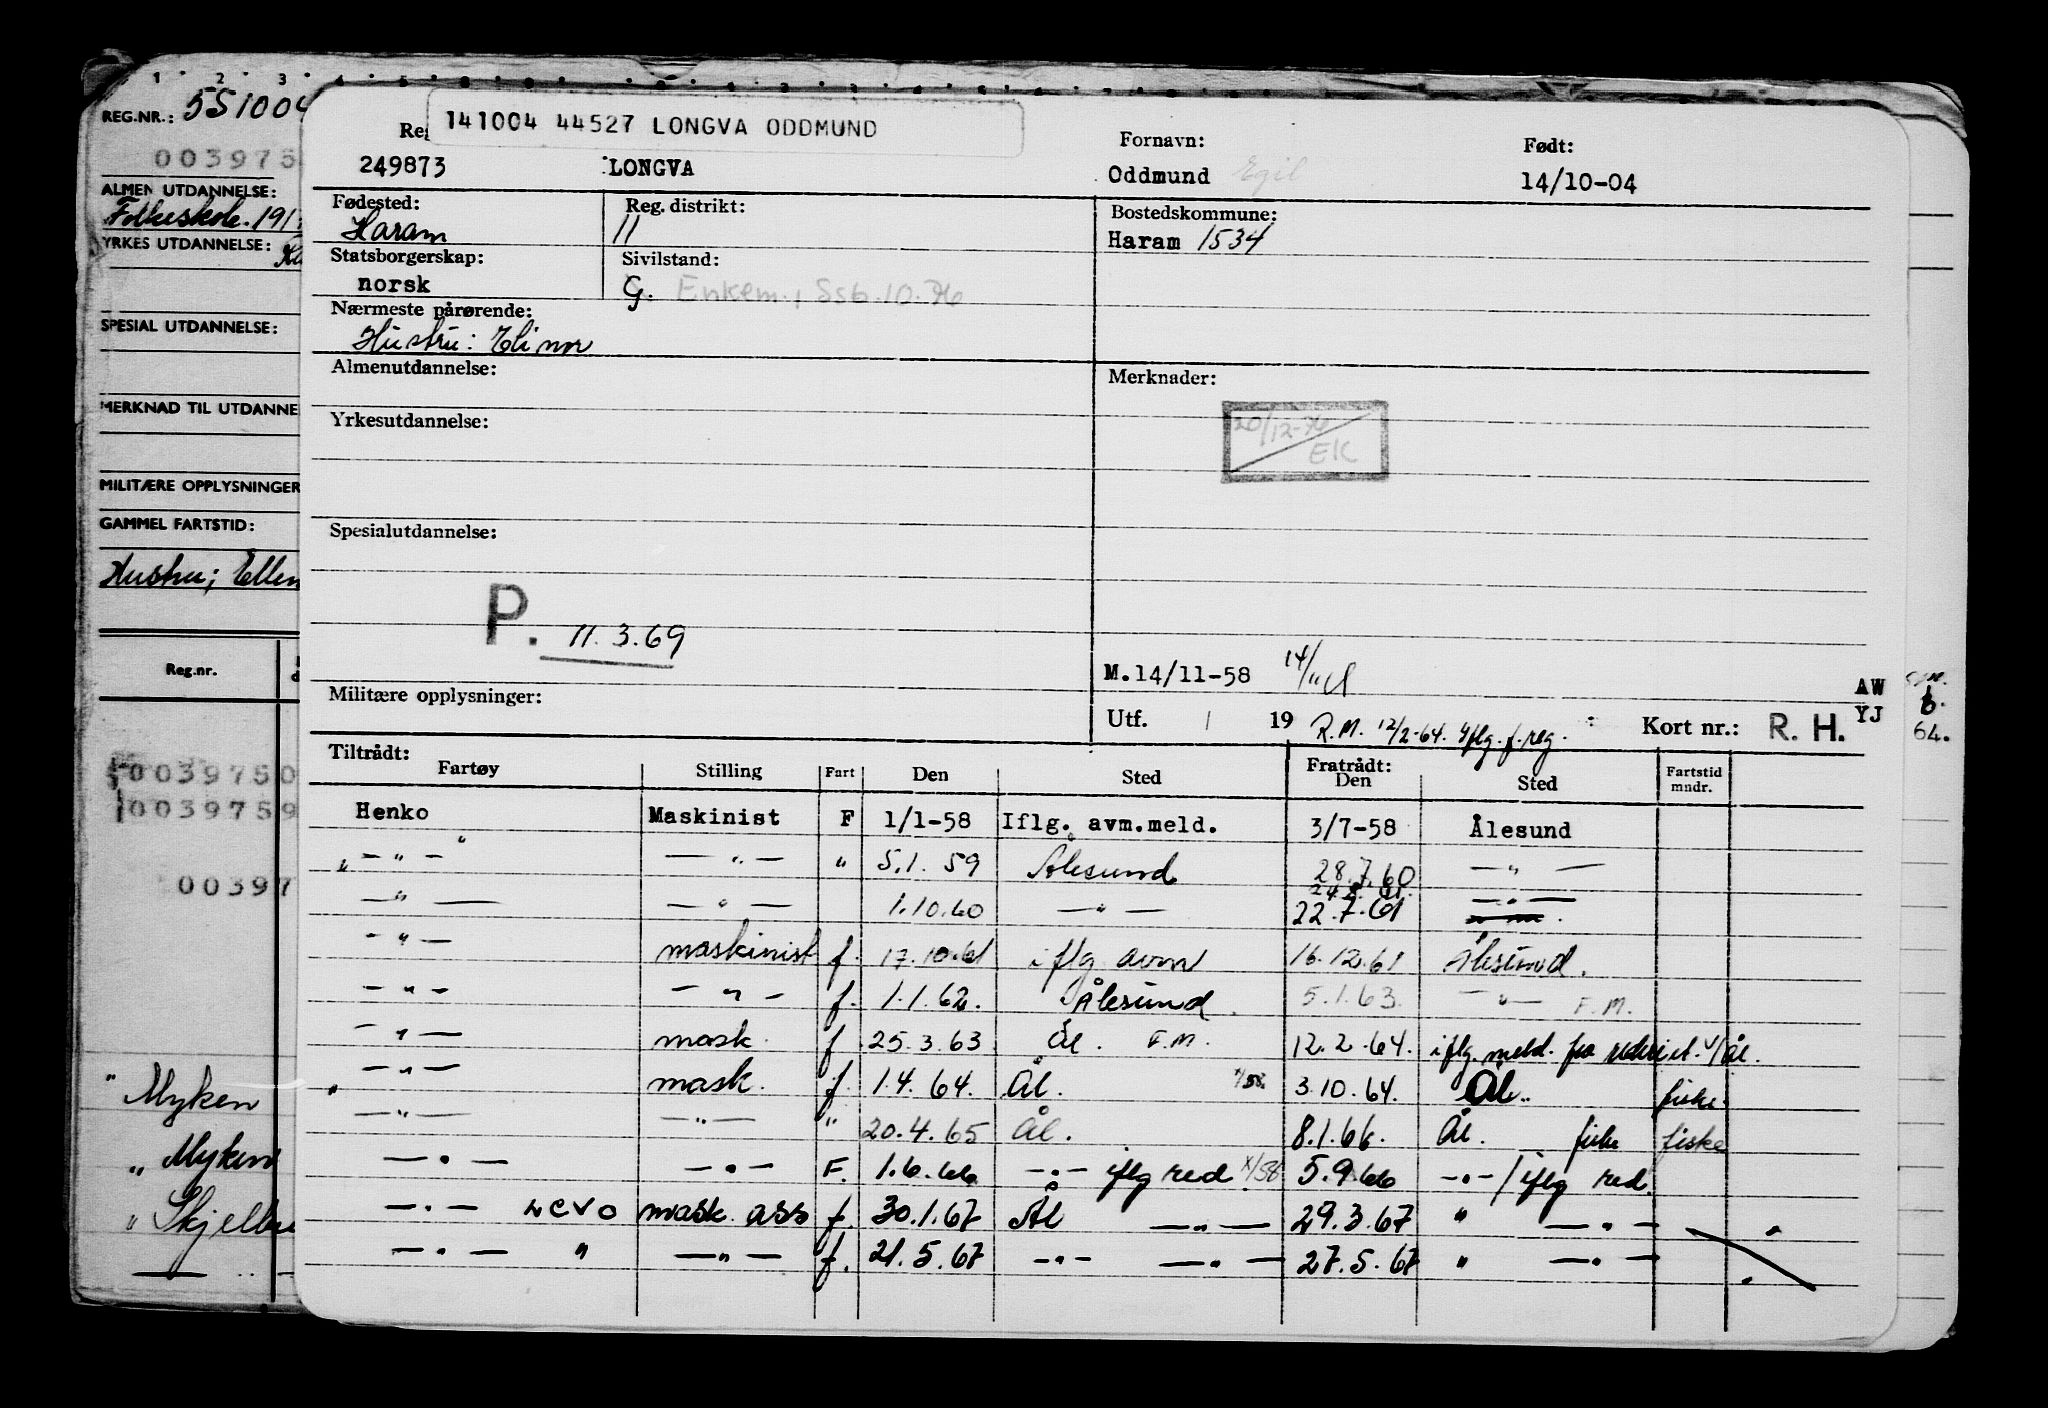 1 2 3 4 5
REG.NR.: 5S1004
003975
ALMEN UTDANNELSE:
Folkeskole. 191
YRKES UTDANNELSE:
SPESIAL UTDANNELSE:
MERKNAD TIL UTDANNE
MILITÆRE OPPLYSNINGER
GAMMEL FARTSTID:
Hustru; Ellen
Reg.nr.
0039750
0039759
00397
" Myken
" Myken
" Skjelbr
Reg
141004 44527 LONGVA ODDMUND
249873 LONGVA
Fornavn:
Oddmund Egil
Født:
14/10-04
Fødested:
Haram
Reg. distrikt:
11
Bostedskommune:
Haram 1534
Statsborgerskap:
norsk
Sivilstand:
G. Enkem., Ssb. 10.76
Nærmeste pårørende:
Hustru: Elinor
Almenutdannelse:
Merknader:
20/12-76
EK
Yrkesutdannelse:
Spesialutdannelse:
P. 11.3.69
M.14/11-58 14/11
AW
YJ
64.
Militære opplysninger:
Utf. 1 19 R.M. 12/2-64. iflg. f. reg. Kort nr.: R. H.
Tiltrådt: Fratrådt:
Fartøy Stilling Fart Den Sted Den Sted Fartstid mndr.
Henko Maskinist F 1/1-58 Iflg. avm.meld. 3/7-58 Ålesund
" — " — — " — " 5.1.59 Ålesund 28.7.60 — " —
— " — — " — 1.10.60 — " — 22.7.61 — " —
— " — maskinist f. 17.10.61 iflg avm 16.12.61 Ålesund.
— " — — " — f. 1.1.62. Ålesund. 5.1.63. — " — F.M.
— " — mask. f 25.3.63 Ål. F.M. 12.2.64. iflg. meld. fra rederiet. v/Ål.
" — " — mask. f. 1.4.64. Ål. x/58. 3.10.64. Ål. fiske.
— " — — " — " 20.4.65 Ål. 8.1.66. Ål. fiske fiske
— " — — " — F. 1.6.66 — " — iflg red. x/58 5.9.66 — " — / iflg red.
— " — LCVO mask. ass f. 30.1.67 Ål — " — 29.3.67 " — " —
— " — " — " — f. 21.5.67 — " — — " — 27.5.67 " — " —